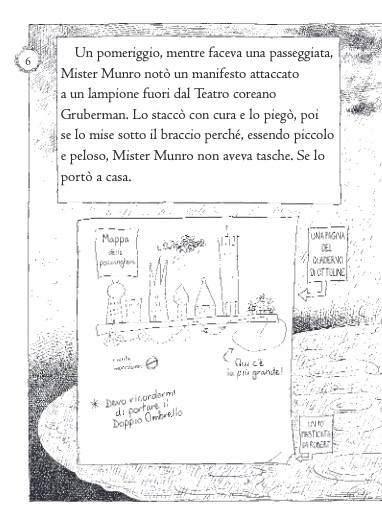 6
Un pomeriggio, mentre faceva una passeggiata,
Mister Munro notò un manifesto attaccato
a un lampione fuori dal Teatro coreano
Gruberman. Lo staccò con cura e lo piegò, poi
se lo mise sotto il braccio perché, essendo piccolo
e peloso, Mister Munro non aveva tasche. Se lo
portò a casa.
Mappa
delle
pozzanghere
UNA PAGINA
DEL
QUADERNO
DI OTTOLINE
Qui c'è
la più grande!
* Devo ricordarmi
di portare il
Doppio Ombrello
UN PO'
MASTICATA
DA ROBERT